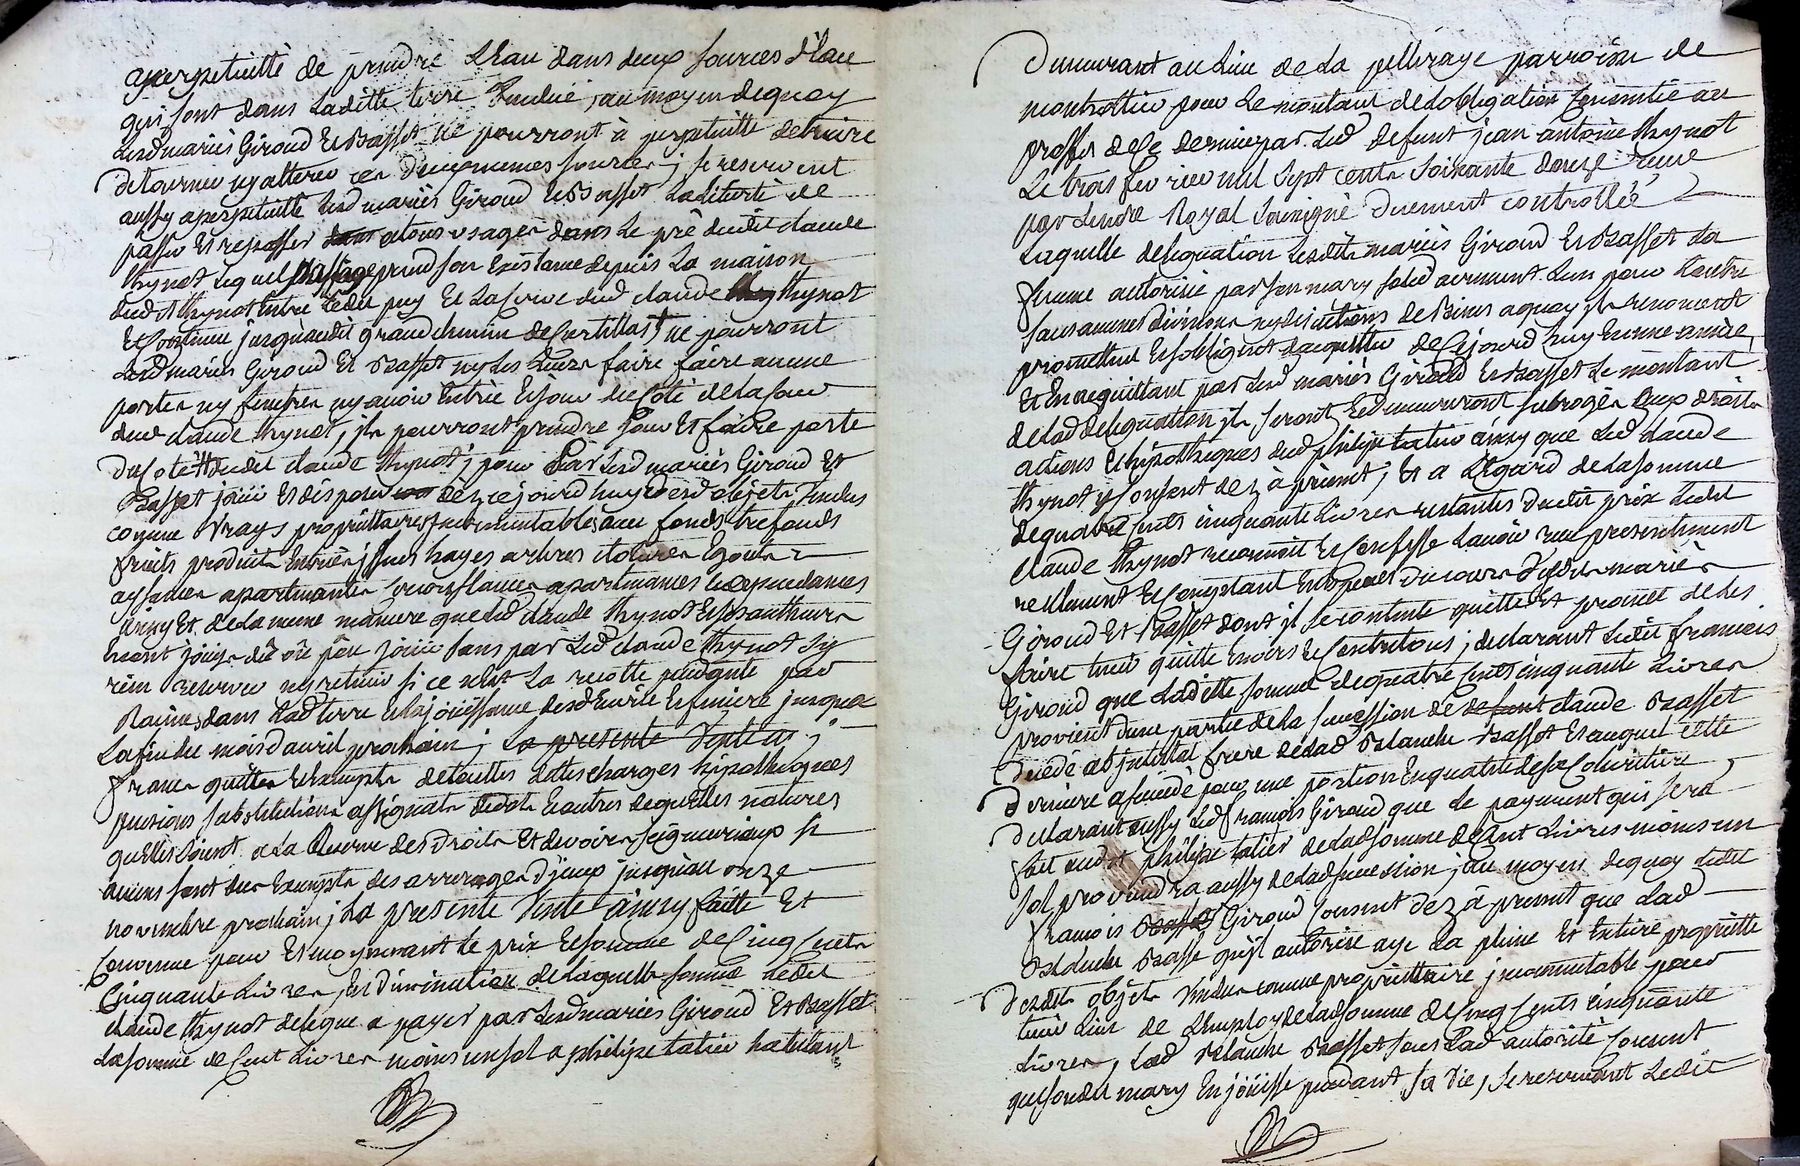 aperpetuitté de prendre Leau dans deux sources d'Eau
qui sont dans Laditte terre vendüe, au moyen dequoy
Lesd mariés Giroud Et Basset ne pourront à perpetuitté detruire
detourner ny alterer ces deux mêmes sources ; se reservent
aussy aperpetuitté Lesd mariés Giroud Et Basset La liberté de
passer Et repasser atous usages dans Le pré dudit claude
thynot Lequel passage prend son Existance depuis La maison
dud thynot Entre Ledit puy Et La cuive dud claude thynot
Et continue jusquaudit grand chemin de ne pourront
Lesd mariés Giroud Et Basset ny les Leurs faire faire aucune
portes ny fenestres ny avoir Entrée Et jour du Coté de La cour
dud claude thynot, jls pourront prendre jour Et faire porte
du coté dudit claude thynot ; pour par Lesd mariés Giroud Et
Basset joüir Et disposer dèz cejourd'huy desd objets vendus
comme vrays proprietaires jncommutables avec fonds trefonds
fruits produits Entrées jssües hayes arbres clotures Egouts
aysances apartenantes circonstances apartenances Et dependances
ainsy Et de la meme maniere que led claude thynot Et ses autheurs
n'ont joüy dû ou pû joüir sans par Led claude thynot s'y
rien reserver ny retenir si ce n'est La recolte pendante par
Racines dans Lad terre Et La joüissance desd Ecurie Et feniere jusques
La fin du mois d'avril prochain ; La presente Vente est ;
franche quitte Et Exempte de touttes dettes charges hipotheques
pensions substitutions assignats dedots Et autres de quelles natures
quelles soient a La Reserve des Droits Et devoirs seigneuriaux si
aucuns sont dus Exempts des arrerages d'jceux jusqu'au onze
novembre prochain ; La presente Vente ainsy faitte Et
Convenue pour Et moyennant Le prix Et somme de Cinq Cents
Cinquante Livres, En diminution de Laquelle somme Ledit
claude thynot delegue a payer par Lesd mariés Giroud Et Basset
La somme de Cent Livres moins un sol a philipe tatieu habitant
Demeurant au Lieu de La pelleraye parroisse de
montrottier pour Le montant de Lobligation Consentie au
proffit de Ce dernier par Led defunt jean antoine thynot
Le trois fevrier mil sept cents soixante douze reçue
par Lendre Royal soussigné Duement controllée
Laquelle delegation Lesdits mariés Giroud Et Basset La
femme autorisée par son mary solidairement Lun pour Lautre
sans aucunes divisions ny discutions de Biens aquoy jls renoncent
promettent Et sobligent dacquitter de Cejourd'huy En une année
Et En acquittant par Lesd mariés Giroud Et Basset Le montant
de Lad delegation jls seront Et demeureront subrogés Aux droits
actions Et hipotheques dud philipe tatieu ainsy que Led claude
thynot y Consent dez à présent ; Et a L'Egard de La somme
de quatre Cents cinquante Livres restantes dudit prix Ledit
claude thynot reconnoit Et Confesse L'avoir reçu presentement
reellement Et Comptant En Especes du cours desdits mariés
Giroud Et Basset dont jl se contente quitte Et promet de Les
faire tenir quitte Envers Et Contre tous ; declarant Ledit francois
Giroud que Laditte somme de quatre Cents cinquante Livres
provient d'une partie de La succession de claude Basset
décédé abjntestat frere de Lad Blanche Basset Et auquel cette
derniere a succédé pour une portion En quatre de sa Coheritiere
declarant aussy Led François Giroud que Le payement qui sera
fait aud philipe tatieu de Lad somme de Cent Livres moins un
sol proviendra aussy de Lad succession ; au moyen dequoy Ledit
francois Giroud consent dez à present que Lad
Blanche Basset qu'jl autorise aye La pleine Et Entiere propriette
desdits objets vendus comme proprietaire jncommutable pour
tenir Lieu de L'Employ de Lad somme de Cinq Cents cinquante
Livres, Lad Blanche Basset sous Lad autorité consent
que son dit mary En joüisse pendant sa Vie, se reservant Ledit